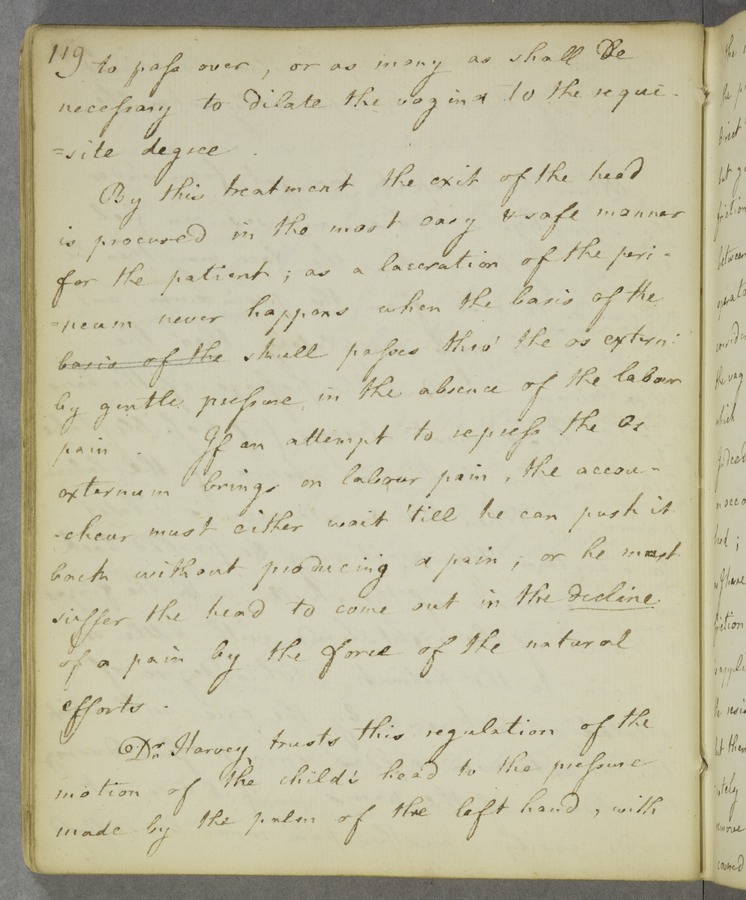 119 to pass over, or as many as shall be
necessary to dilate the vagina to the requi-
=site degree.
By this treatment the exit of the head
is procured in the most easy & safe manner
for the patient; as a laceration of the peri-
=neum never happens when the basis of the
basis of the skull passes thro' the os extern:
by gentle pressure in the absence of the labour
pain. If an attempt to repress the Os
externum brings on labour pain, the accou-
-cheur must either wait 'till he can push it
back without producing a pain; or he must
suffer the head to come out in the decline
of a pain by the force of the natural
efforts.
Dr. Harvey trusts this regulation of the
motion of the child's head to the pressure
made by the palm of the left hand, with